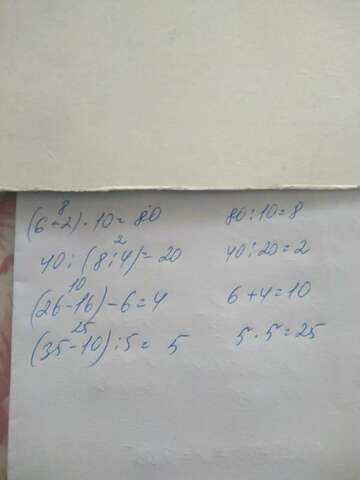 8
(6+2)·10=80 80:10=8
2
40:(8:4)=20 40:20=2
10
(26-16)-6=4 6+4=10
25
(35-10):5= 5 5·5=25